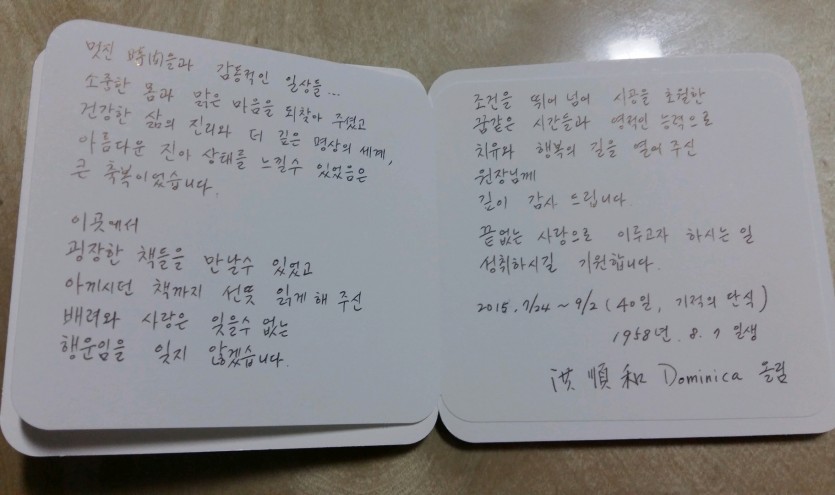 멋진 時間들과 감동적인 일상들...
소중한 몸과 맑은 마음을 되찾아 주셨고
건강한 삶의 진리와 더 깊은 명상의 세계,
아름다운 진아 상태를 느낄수 있었음은
큰 축복이었습니다.
이곳에서
굉장한 책들을 만날수 있었고
아끼시던 책까지 선뜻 읽게 해 주신
배려와 사랑은 잊을수 없는
행운임을 잊지 않겠습니다.
조건을 뛰어 넘어 시공을 초월한
꿈같은 시간들과 영적인 능력으로
치유와 행복의 길을 열어 주신
원장님께
깊이 감사 드립니다.
끝없는 사랑으로 이루고자 하시는 일
성취하시길 기원합니다.
2015. 7/24 ~ 9/2 (40일, 기적의 단식)
1958년. 8. 7 일생
洪順和 Dominica 올림